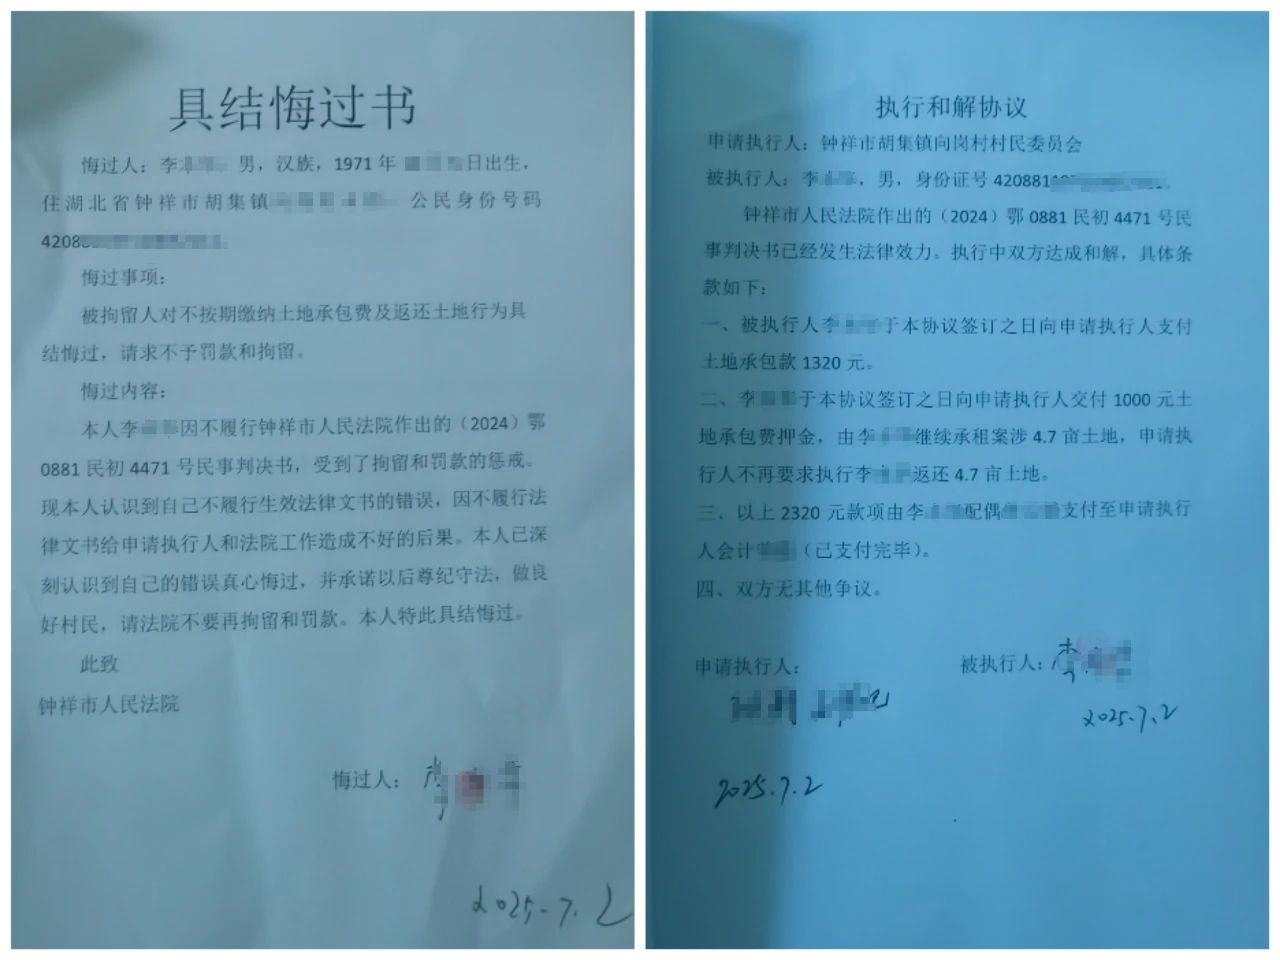 具结悔过书
悔过人：李 男，汉族，1971年 日出生，
住湖北省钟祥市胡集镇 公民身份号码
4208
悔过事项：
被拘留人对不按期缴纳土地承包费及返还土地行为具
结悔过，请求不予罚款和拘留。
悔过内容：
本人李 因不履行钟祥市人民法院作出的（2024）鄂
0881民初4471号民事判决书，受到了拘留和罚款的惩戒。
现本人认识到自己不履行生效法律文书的错误，因不履行法
律文书给申请执行人和法院工作造成不好的后果。本人已深
刻认识到自己的错误真心悔过，并承诺以后尊纪守法，做良
好村民，请法院不要再拘留和罚款。本人特此具结悔过。
此致
钟祥市人民法院
悔过人：李
2025-7.2
执行和解协议
申请执行人：钟祥市胡集镇向岗村村民委员会
被执行人：李 ，男，身份证号420881
钟祥市人民法院作出的（2024）鄂0881民初4471号民
事判决书已经发生法律效力。执行中双方达成和解，具体条
款如下：
一、被执行人李 于本协议签订之日向申请执行人支付
土地承包款1320元。
二、李 于本协议签订之日向申请执行人交付1000元土
地承包费押金，由李 继续承租案涉4.7亩土地，申请执
行人不再要求执行李 返还4.7亩土地。
三、以上2320元款项由李 配偶 支付至申请执行
人会计 （已支付完毕）。
四、双方无其他争议。
申请执行人：
被执行人：李
2025-7.2
2025.7.2